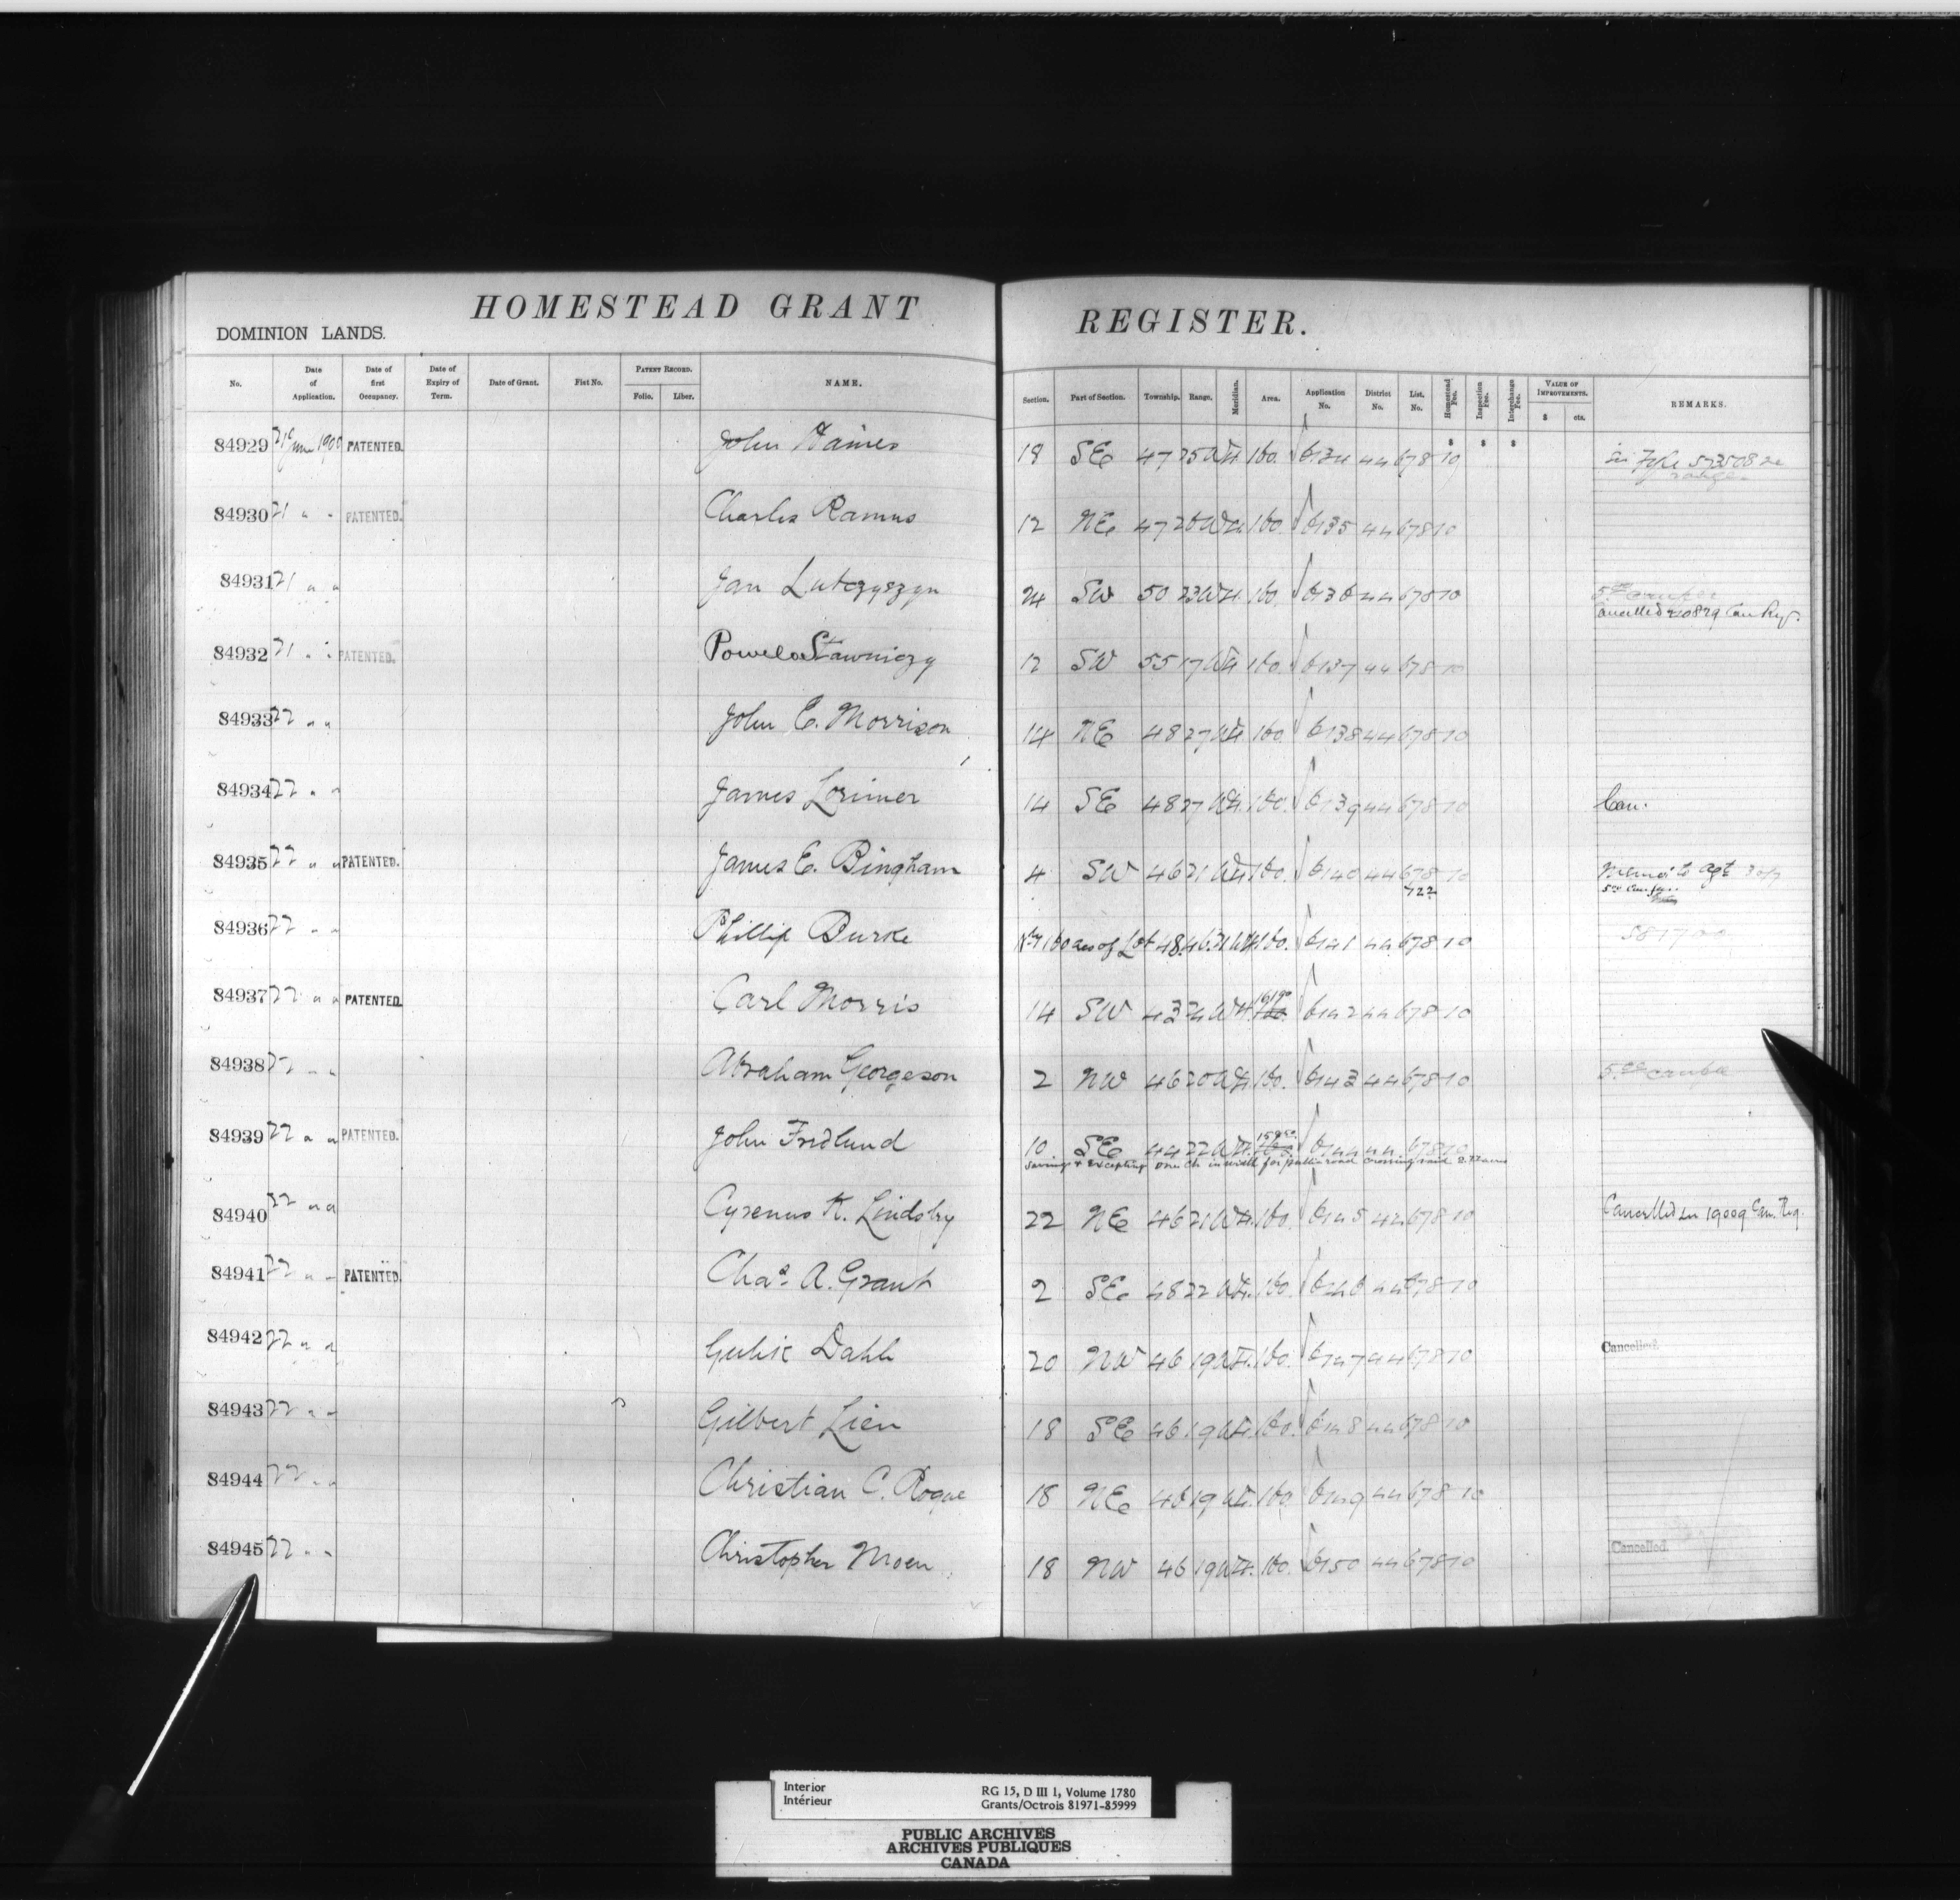 HOMESTEAD GRANT REGISTER.
DOMINION LANDS.
No. Date of Application. Date of first Occupancy. Date of Expiry of Term. Date of Grant. Fiat No. PATENT RECORD. Folio. Liber. NAME. Section. Part of Section. Township. Range. Meridian. Area. Application No. District No. List. No. Homestead Fee. Inspection Fee. Interchange Fee. VALUE OF IMPROVEMENTS. $ cts. REMARKS.
84929 21 June 1900 PATENTED. John Haines 18 SE 47 25 W4 160. 6134 44 678 10
84930 21 " " PATENTED. Charles Ramus 12 NE 47 26 W4 160. 6135 44 678 10
84931 21 " " Jan Lutczyszyn 24 SW 50 23 W4. 160. 6136 44 678 10
Cancelled 210829 Can Reg.
84932 21 " " PATENTED. Stawniczy 12 SW 55 17 W4 160. 6137 44 678 10
84933 22 " " John E. Morrison 14 NE 48 27 W4 160. 6138 44 678 10
84934 22 " " James Lorimer 14 SE 48 27 W4. 160. 6139 44 678 10 Can.
84935 22 " " PATENTED. James E. Bingham 4 SW 46 21 W4 160. 6140 44 678 10
722
84936 22 " " Phillip Burke 160 acs of Lot 48. 46. 21 W4 160. 6141 44 678 10 581700
84937 22 " " PATENTED. Carl Morris 14 SW 43 24 W4. 160. 6142 44 678 10
84938 22 " " Abraham Georgeson 2 NW 46 20 W4 160. 6143 44 678 10
84939 22 " " PATENTED. John Fridlund 10 SE 44 22 W4. 6144 44 678 10
Saving & excepting one ch in width for public road crossing said
84940 22 " " Cyrenus K. Lindsley 22 NE 46 21 W4. 160. 6145 44 678 10 Cancelled Can. Reg.
84941 22 " " PATENTED. Chas. A. Grant 2 SE 48 22 W4. 160. 6146 44 678 10
84942 22 " " Dahl 20 NW 46 19 W4. 160. 6147 44 678 10 Cancelled.
84943 22 " " Gilbert Lien 18 SE 46 19 W4. 160. 6148 44 678 10
84944 22 " " Christian C. Rogne 18 NE 46 19 W4. 160. 6149 44 678 10
84945 22 " " Christopher Moen 18 NW 46 19 W4. 160. 6150 44 678 10 Cancelled.
Interior RG 15, D III 1, Volume 1780
Intérieur Grants/Octrois 81971-85999
PUBLIC ARCHIVES
ARCHIVES PUBLIQUES
CANADA